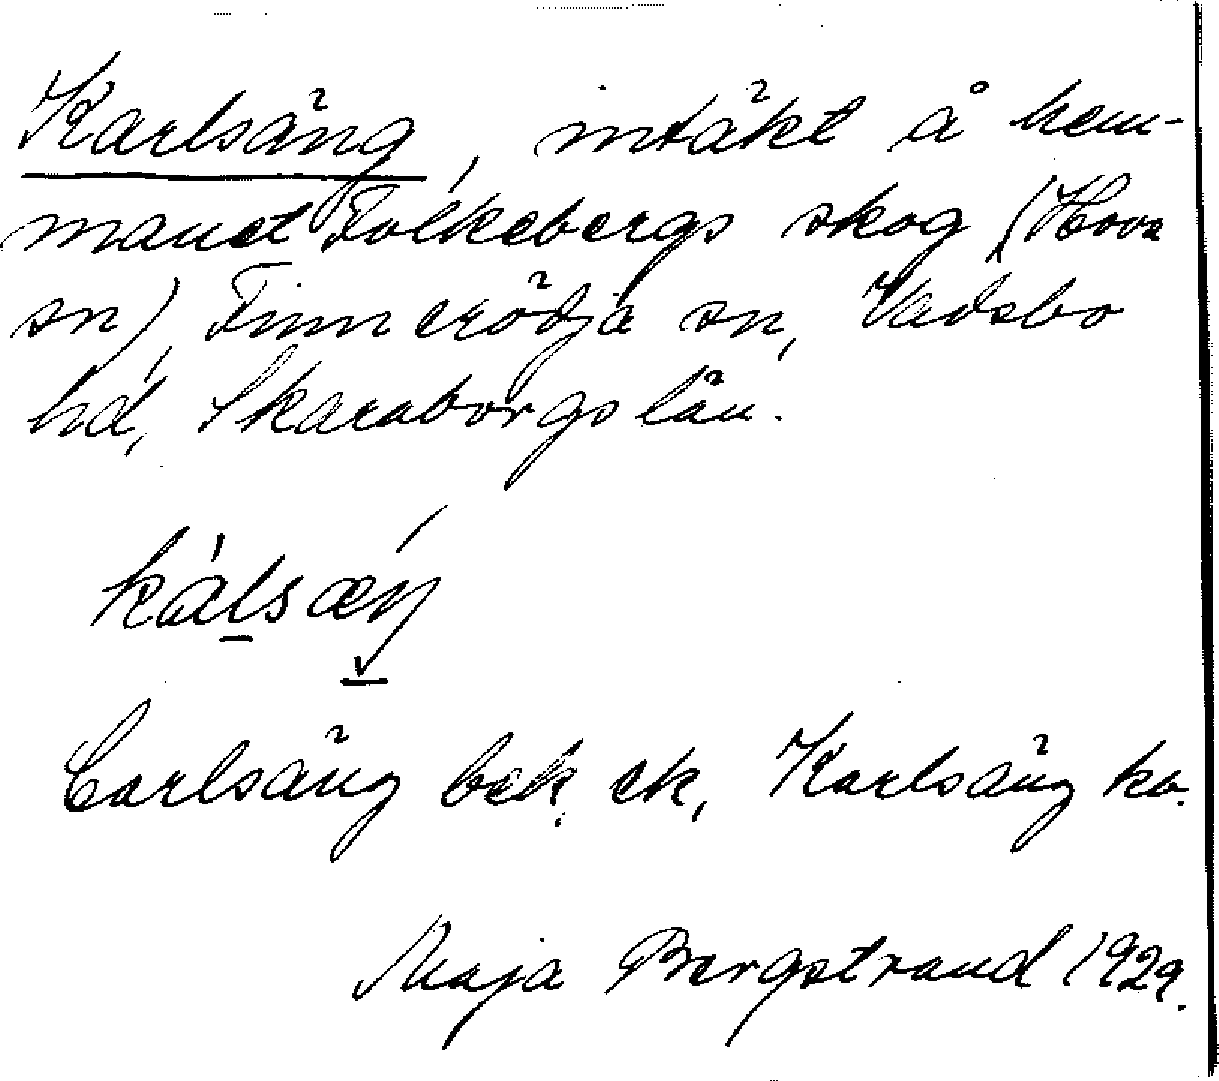 Karlsäng, intäkt å hem-
manet Folkebergs skog (Hova
sn), Finnerödja sn, Vadsbo
hd, Skaraborgs län.
kálsæŋ
Carlsäng bek. ek, Karlsäng ka.
Maja Bergstrand 1929.